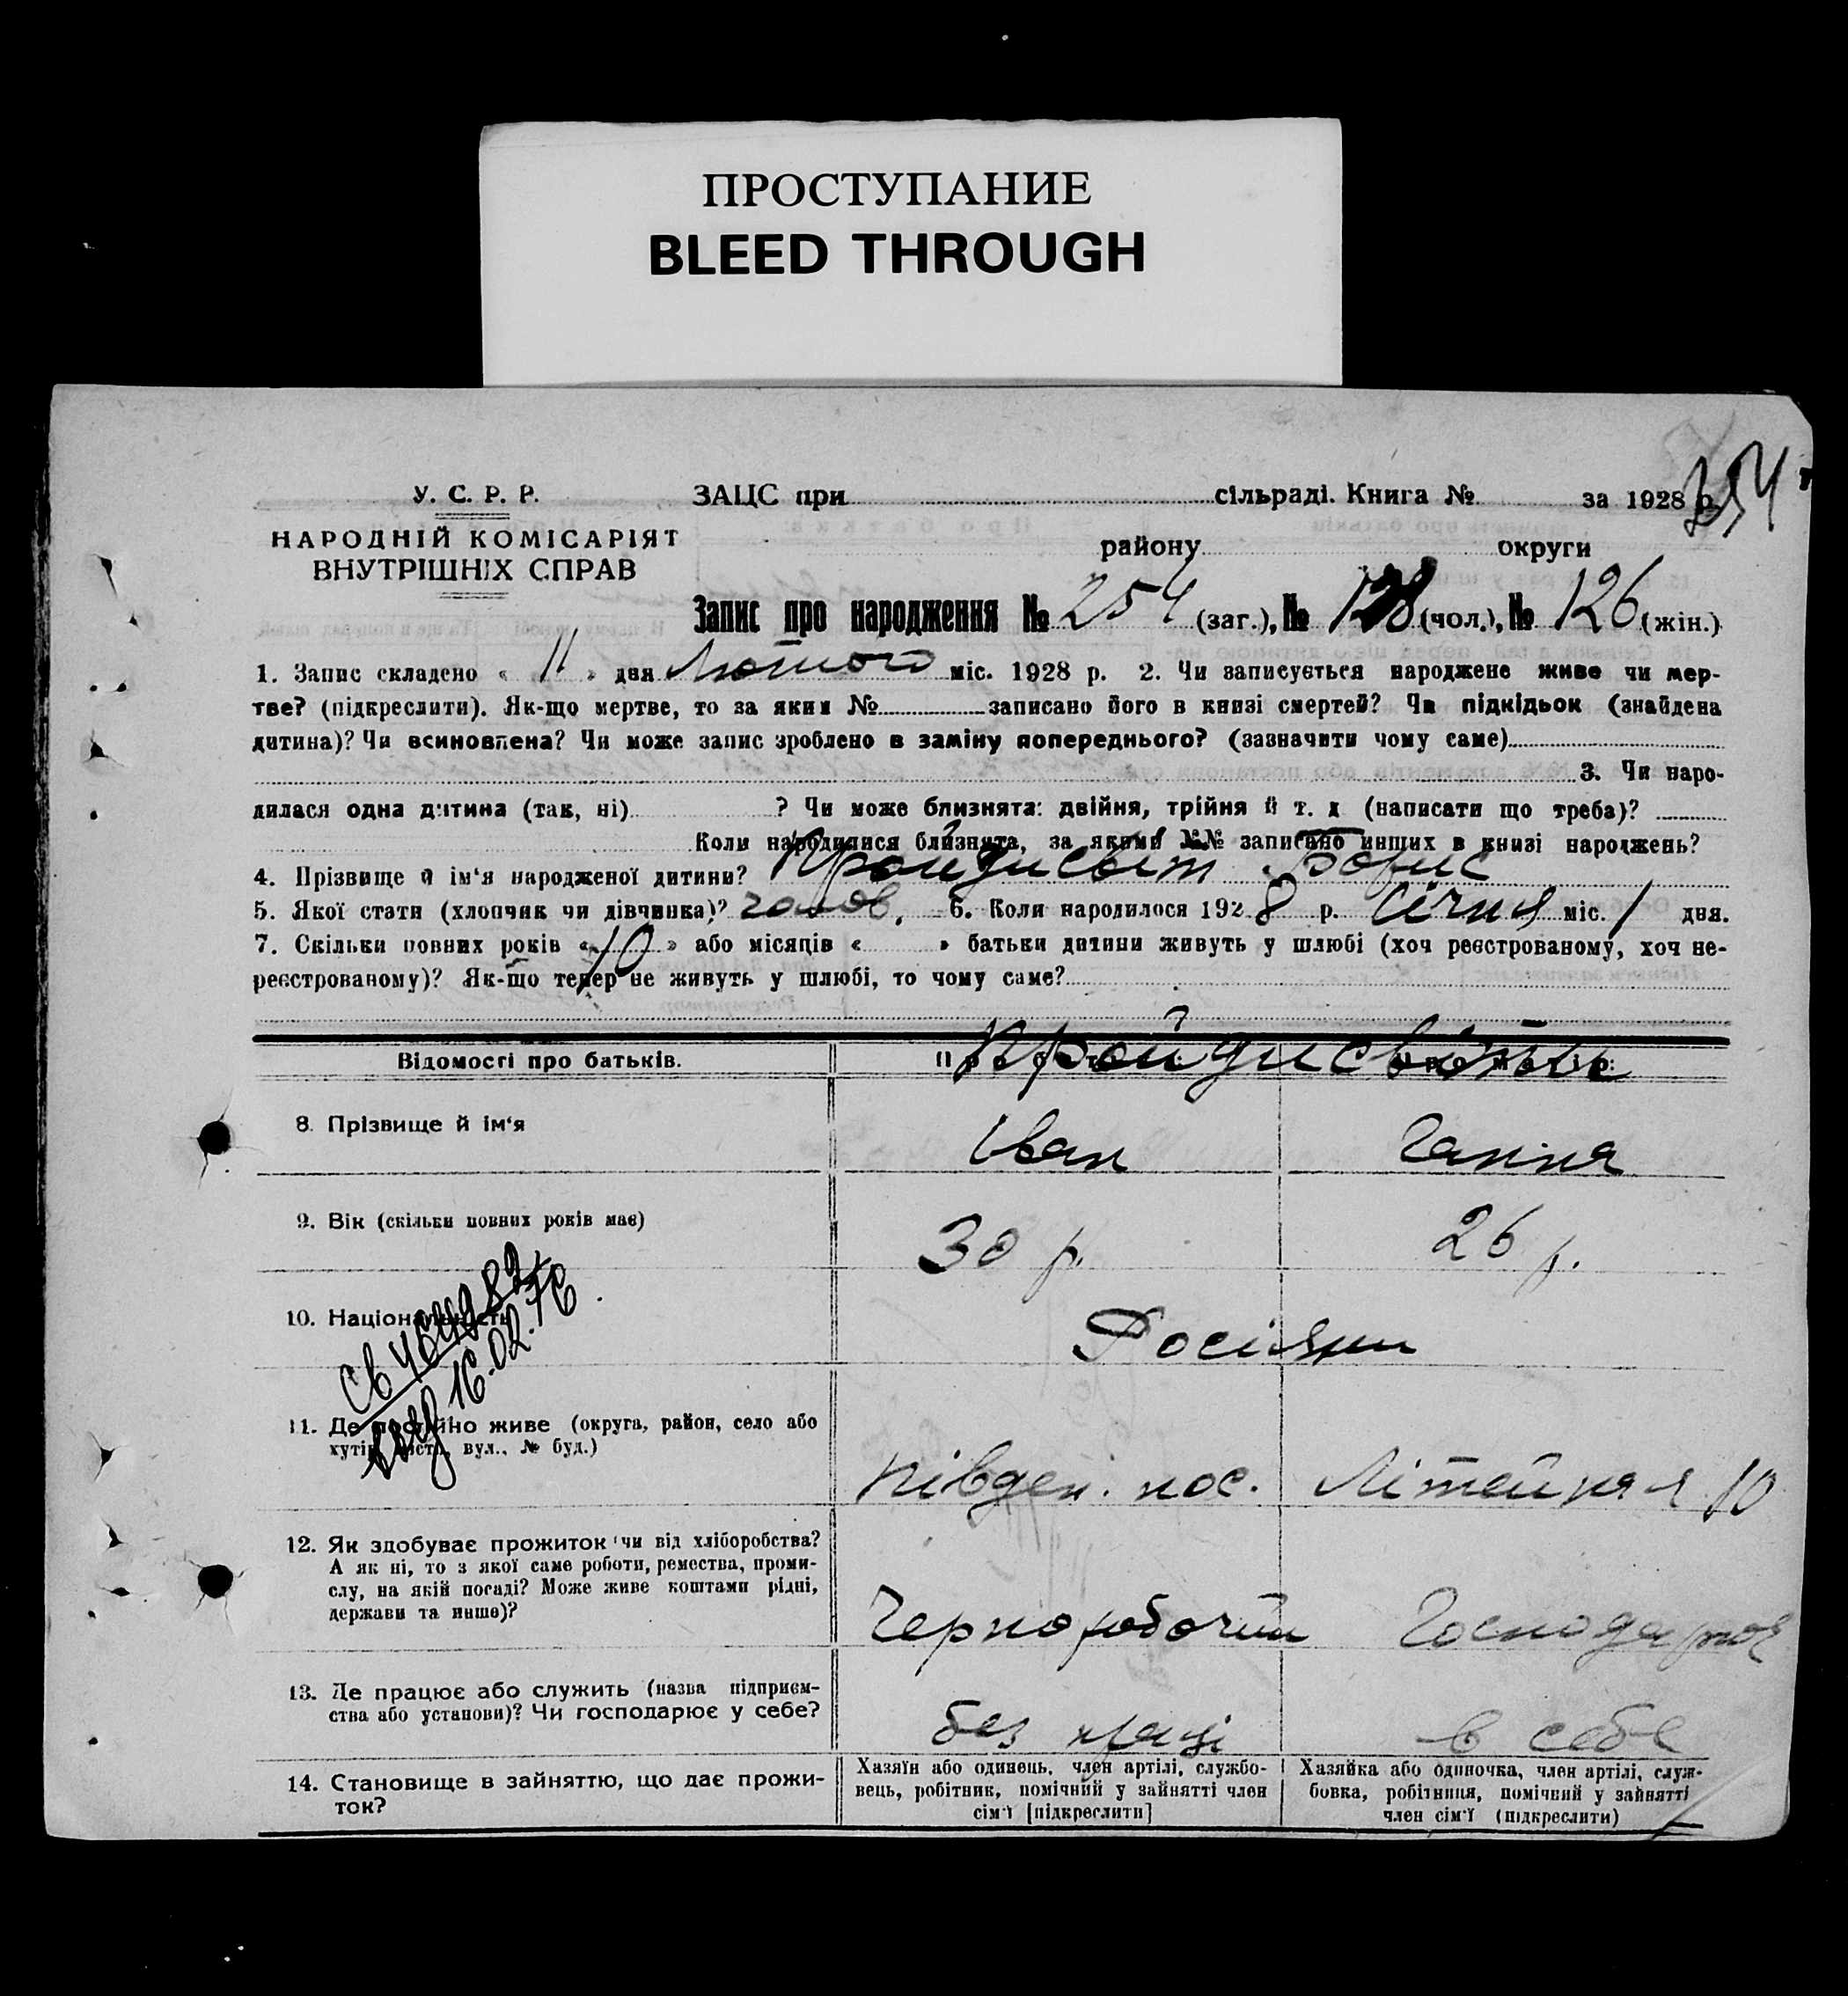 ПРОСТУПАНИЕ
BLEED THROUGH
254
У. С. Р. Р.
НАРОДНІЙ КОМІСАРІЯТ
ВНУТРІШНІХ СПРАВ
ЗАЦС при сільраді. Книга № за 1928 р.
району округи
Запис про народження № 254 (заг.), № 128 (чол.), № 126 (жін.)
1. Запис складено « 11 » дня Лютого міс. 1928 р. 2. Чи записується народжене живе чи мер-
тве? (підкреслити). Як-що мертве, то за яким № записано його в книзі смертей? Чи підкідьок (знайдена
дитина)? Чи всиновлена? Чи може запис зроблено в заміну попереднього? (зазначити чому саме)
3. Чи наро-
дилася одна дитина (так, ні) ? Чи може близнята: двійня, трійня й т. д (написати що треба)?
Коли народилися близнята, за якими №№ записано инших в книзі народжень?
4. Прізвище й ім'я народженої дитини? Пройдисвіт Борис
5. Якої стати (хлопчик чи дівчинка)? чолов. 6. Коли народилося 1928 р. Січня міс. 1 дня.
7. Скільки повних років « 10 » або місяців « » батьки дитини живуть у шлюбі (хоч реєстрованому, хоч не-
реєстрованому)? Як-що тепер не живуть у шлюбі, то чому саме?
Відомості про батьків.
Пройдисвіти
8. Прізвище й ім'я
Іван Ганна
9. Вік (скільки повних років має)
30 р. 26 р.
10. Національність
Росіяни
16.02.76
11. Де постійно живе (округа, район, село або
хутір, місто, вул., № буд.)
Півден. пос. Літейная 10
12. Як здобуває прожиток чи від хліборобства?
А як ні, то з якої саме роботи, ремества, проми-
слу, на якій посаді? Може живе коштами рідні,
держави та инше)?
Черноробочий Господарює
13. Де працює або служить (назва підприєм-
ства або установи)? Чи господарює у себе?
без праці в себе
14. Становище в зайняттю, що дає прожи-
ток?
Хазяїн або одинець, член артілі, службо-
вець, робітник, помічний у зайнятті член
сім'ї [підкреслити]
Хазяйка або одиночка, член артілі, служ-
бовка, робітниця, помічний у зайнятті
член сім'ї (підкреслити)